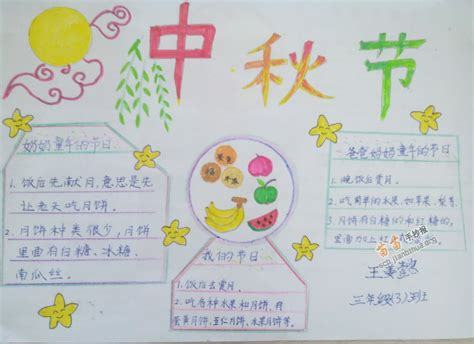 中秋节
奶奶童年的节日
1. 饭后先献月,意思是先
让老天吃月饼。
2. 月饼种类很少,月饼
里面有白糖、冰糖、
南瓜丝。
蛋黄
福
我们的节日
1. 饭后去赏月。
2. 吃各种水果和月饼,有
蛋黄月饼、五仁月饼、水果月饼等。
爸爸妈妈童年的节日
1. 晚饭后赏月。
2. 吃简单的水果,如苹果、梨等。
3. 月饼有白糖的和红糖的,
里面加上红
苗苗手抄报
三年级(3)班